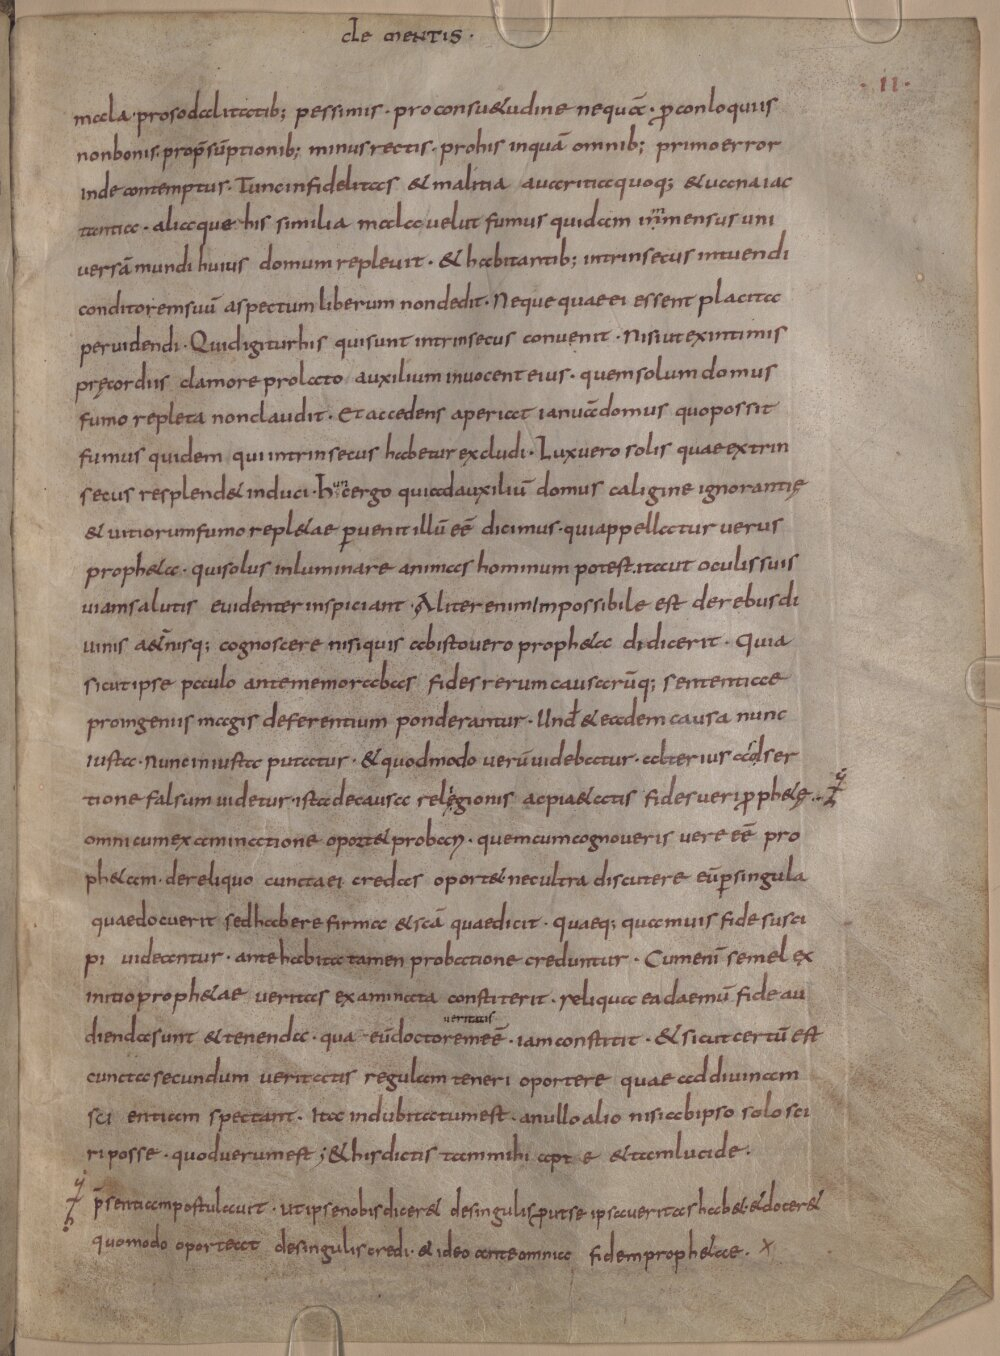 cle mentis ·
· 11 ·
mala · prosodalitatib; pessimis · pro consu&udine nequā · p conloquiis
non bonis · prop̄sūptionib; minus rectis · pro his inquā omnib; primo error
inde contemptus · Tunc infidelitas & malitia auaritia quoq; & uana iac
tantia · aliaque his similia mala uelut fumus quidam inmensus uni
uersā mundi huius domum repleuit · & habitantib; intrinsecus intuendi
conditorem suū aspectum liberum non dedit · Neque quae ei essent placita
peruidendi · Quid igitur his qui sunt intrinsecus conuenit · Nisi ut ex intimis
pręcordiis clamore prolato auxilium inuocent eius · quem solum domus
fumo repleta non claudit · Et accedens aperiat ianuā domus quo possit
fumus quidem qui intrinsecus habetur excludi · Lux uero solis quae extrin
secus resplend& induci · Hunc ergo quia ad auxiliū domus caligine ignorantię
& uitiorum fumo repl&ae puenit illū eē dicimus · qui appellatur uerus
proph&a · qui solus inluminare animas hominum potest · ita ut oculis suis
uiam salutis euidenter inspiciant · Aliter enim Impossibile est de rebus di
uinis a&nisq; cognoscere nisi quis ab isto uero proph&a didicerit · Quia
sicut ipse paulo ante memorabas fides rerum causarūq; sententiae
pro ingeniis magis deferentium ponderantur · Und & eadem causa nunc
iusta · nunc iniusta putatur · & quod modo uerū uidebatur · ab terius adser
tione falsum uidetur · ista de causa religionis ac pi&atis fides ueri pph&ę ·
omni cum examinatione oport& probari · quem cum cognoueris uere eē pro
ph&am · de reliquo cuncta ei credas oport& nec ultra discutere eū p singula
quae docuerit sed habere firma & scā quae dicit · quaeq; quamuis fide susci
pi uideantur · ante habita tamen probatione creduntur · Cum enī semel ex
initio proph&ae ueritas examinata constiterit · reliqua ea daemū fide au
dienda sunt & tenenda · qua eū doctorem eē · iam constitit · & sicut certū est
ueritatis
cuncta secundum ueritatis regulam teneri oportere quae ad diuinam
sci entiam spectant · Ita indubitatum est · a nullo alio nisi ab ipso solo sci
ri posse · quod uerum est ; & his dictis tam mihi apt e & tam lucide ·
p̄sentiam postulauit · ut ipse nobis dicer& de singulis p ut se ipsa ueritas hab& · & docer&
quomodo oporteat de singulis credi · & ideo ante omnia fidem proph&ae · x